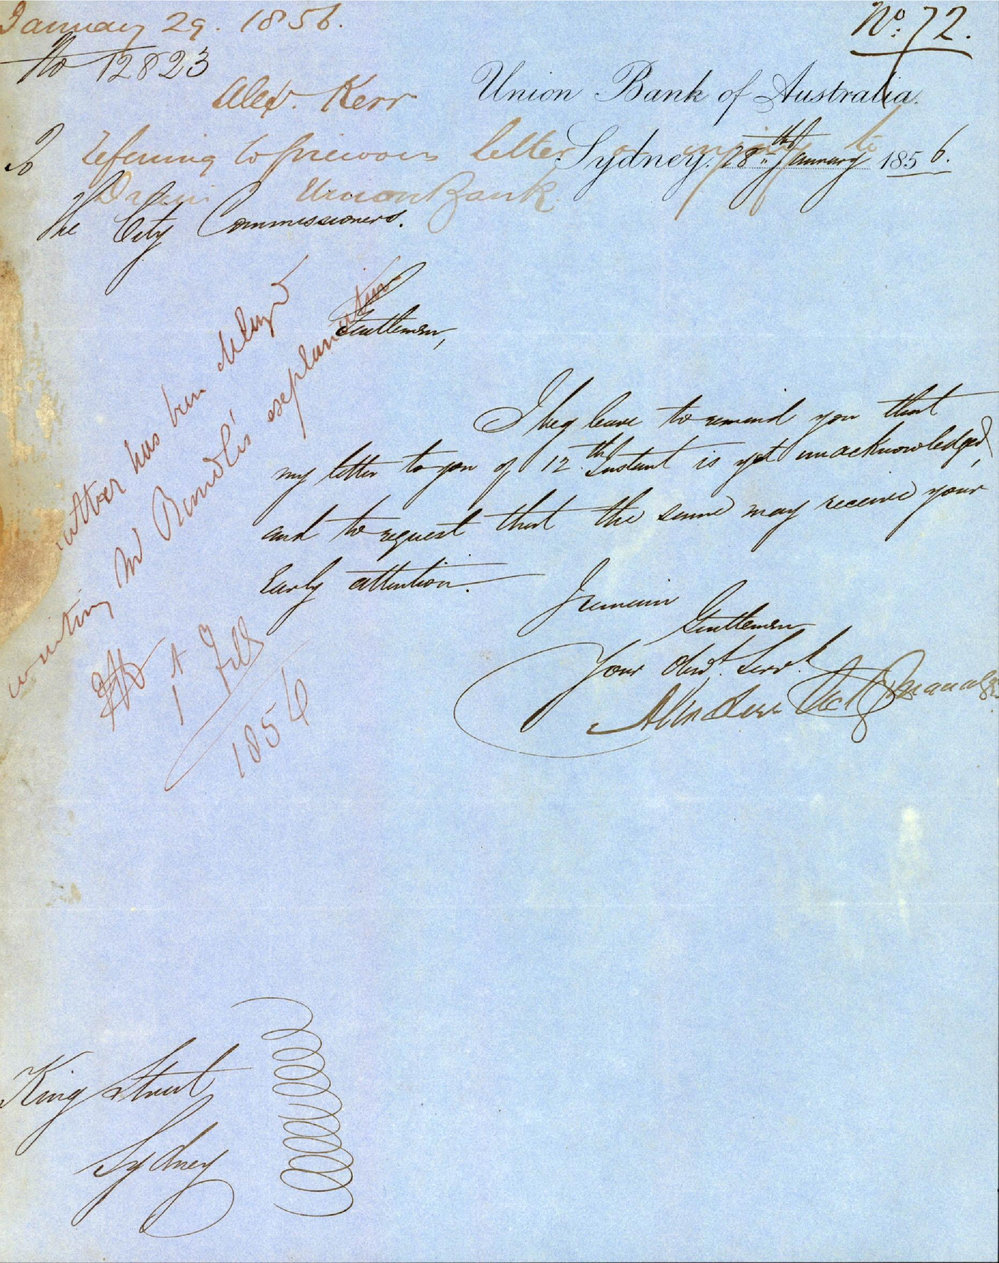 January 29. 1856.
No. 72.
No 12823
Alexr. Kerr
Union Bank of Australia.
referring to previous letter on injury to
Sydney. 28th January 1856.
Drain Union Bank
The City Commissioners.
Gentlemen,
I beg leave to remind you that
my letter to you of 12th Instant is yet unacknowledged,
and to request that the same may receive your
early attention.
I remain
Gentlemen
Your Obedt. Servt.
Alexr Kerr Act Manager
matter has been delayed
waiting Mr explanation
1 Feb
1856
King Street
Sydney